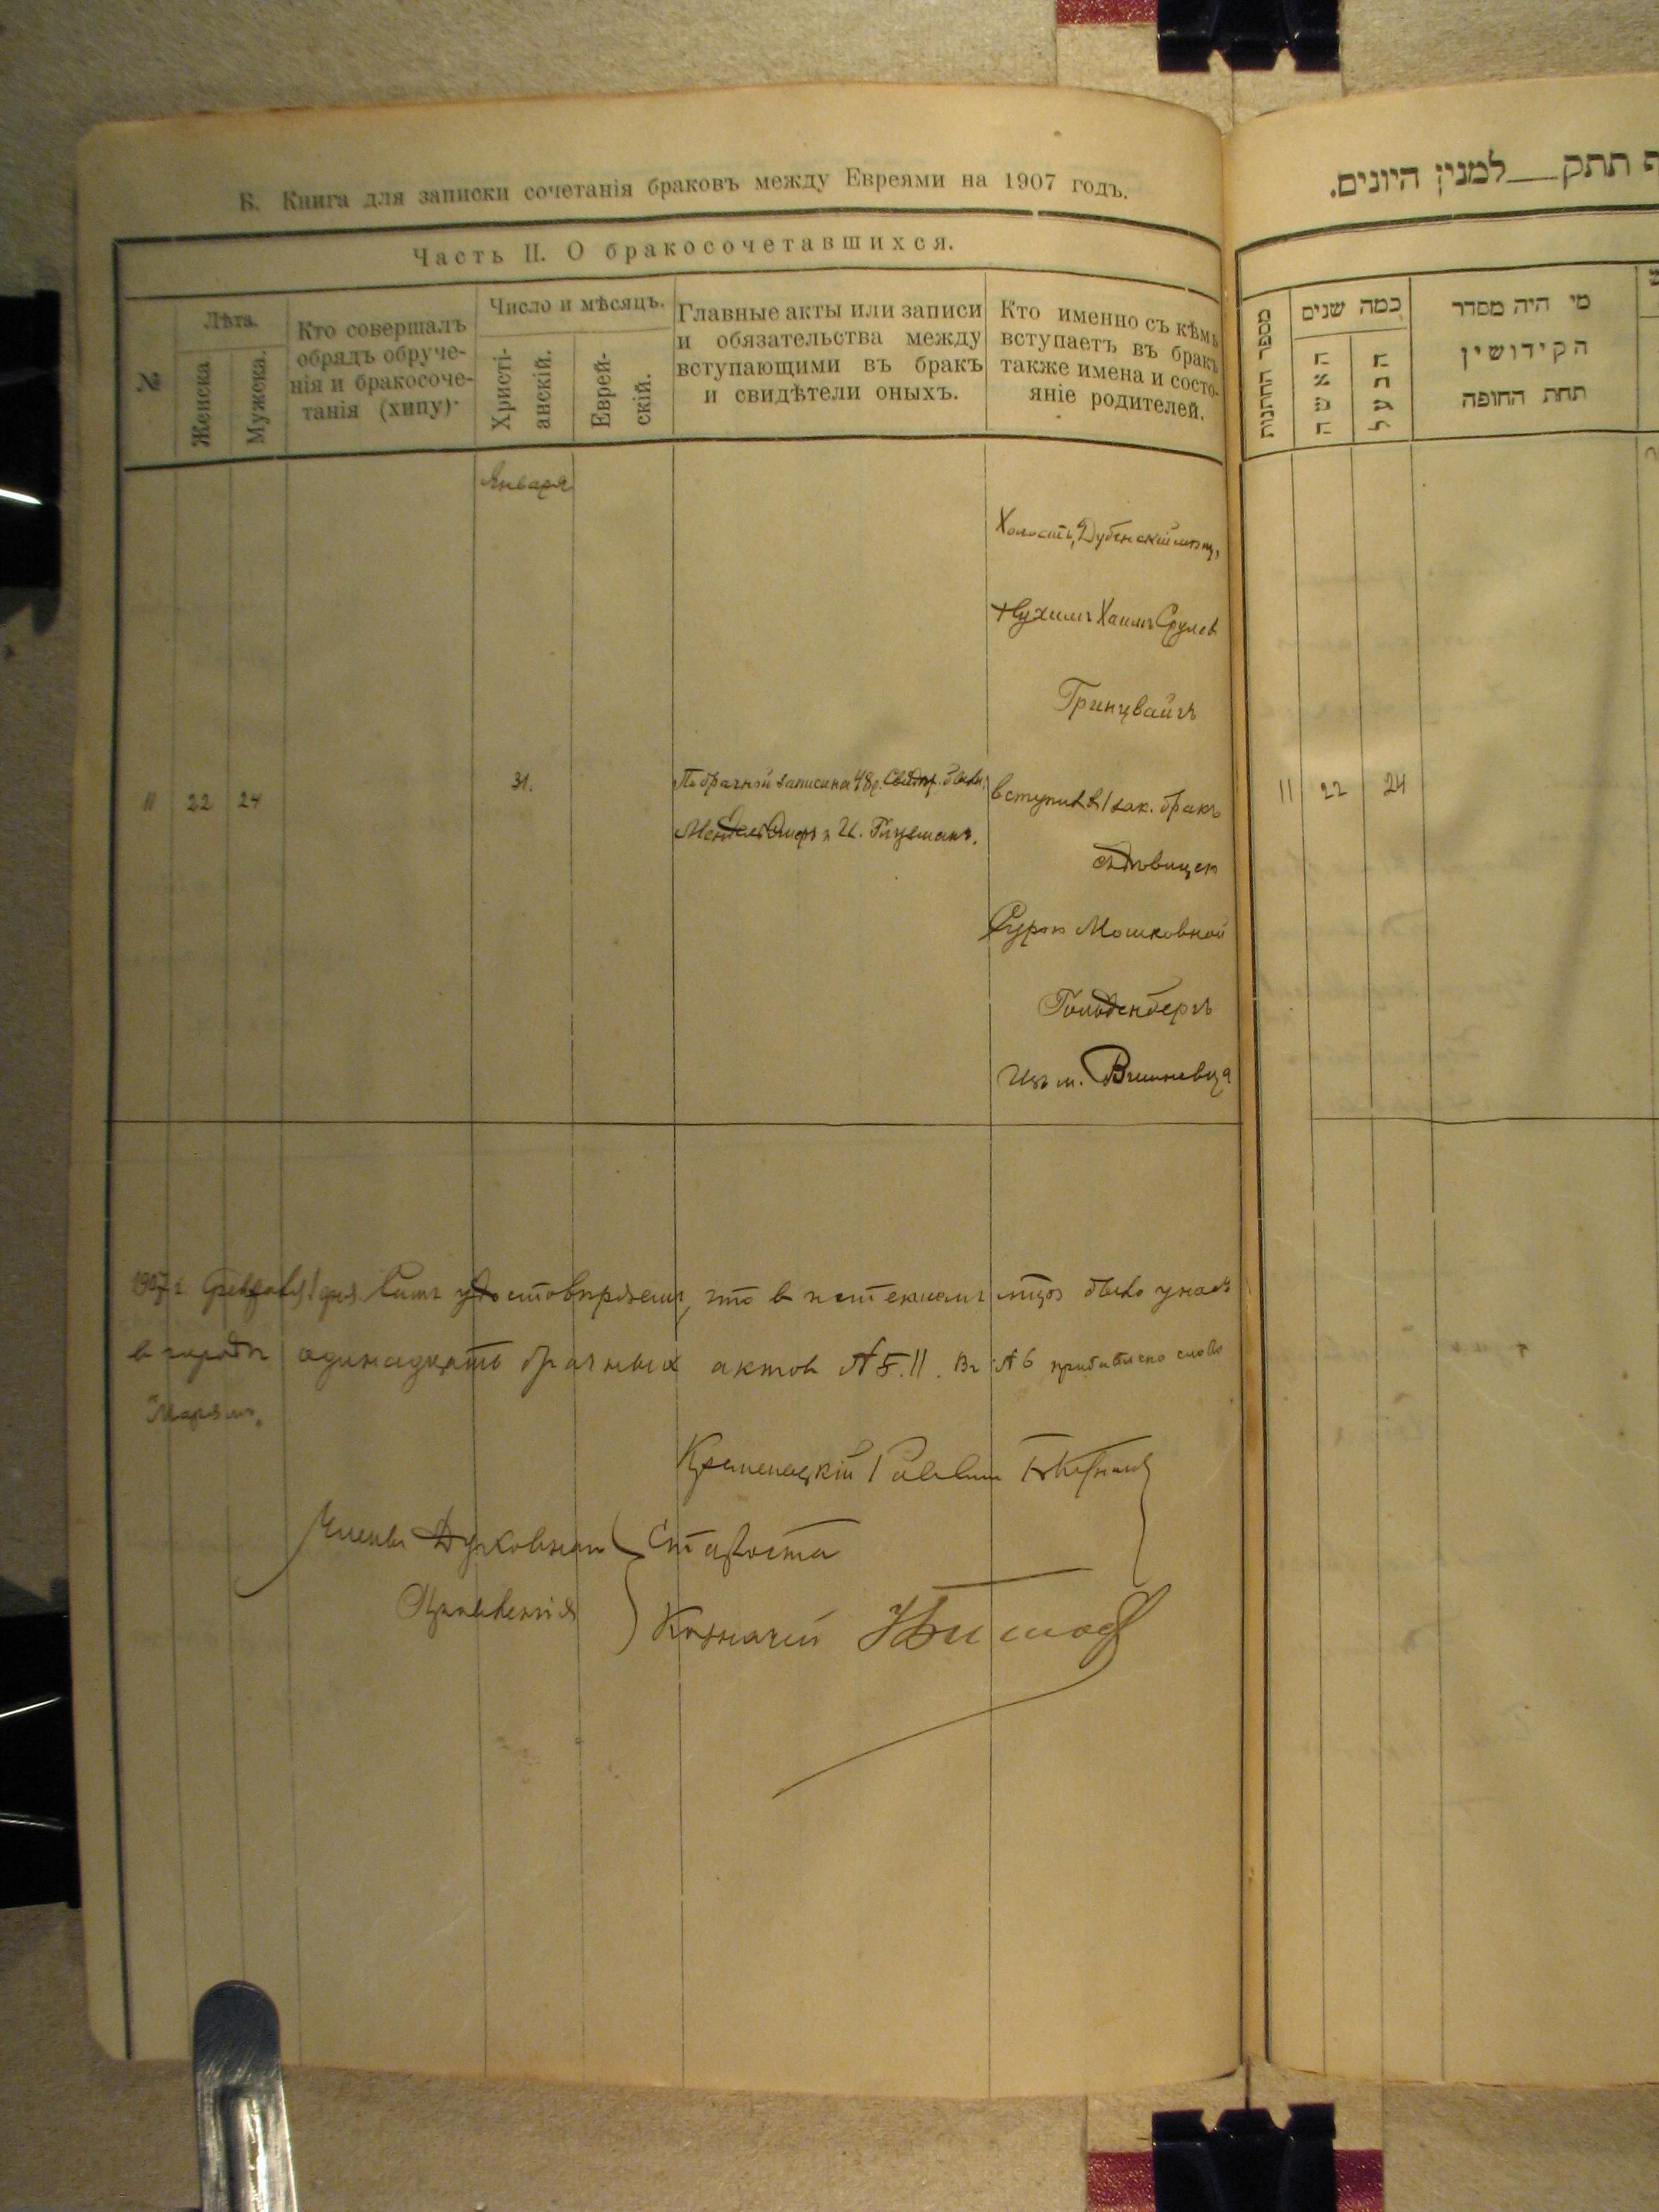 Б. Книга для записки сочетанія браковъ между Евреями на 1907 годъ.
Часть II. О бракосочетавшихся.
№
Лѣта.
Женска
Мужска.
Кто совершалъ
обрядъ обруче-
нія и бракосоче-
танія (хипу).
Число и мѣсяцъ.
Христі-
анскій.
Еврей-
скій.
Главные акты или записи
и обязательства между
вступающими въ бракъ
и свидѣтели оныхъ.
Кто именно съ кѣмъ
вступаетъ въ бракъ
также имена и состо-
яніе родителей.
Января
Холостъ, Дубенскій мѣщ,
Нухимъ Хаимъ Срулев
Гринцвайгъ
11 22 24
31.
По брачной записи на 48 р. Свидѣт. были
Мендель и И. Глузманъ.
вступилъ в 1 зак. бракъ
съ дѣвицею
Сурою Мошковной
Гольденбергъ
Изъ м. Вишневца
1907 г. Февраля 1 дня. Симъ удостовѣряемъ, что в истекшемъ мцѣ было у насъ
в городѣ одинадцать брачныхъ актов № 11. Въ № 6 прибавлено слово
"Марьямъ"
Кременецкій Раввин
Члены Духовнаго
Правленія
Староста
Казначей
ף תתק__למנין היונים.
מספר החתונות
כמה שנים
האשה
הבעל
מי היה מסדר
הקידושין
תחת החופה
11 22 24